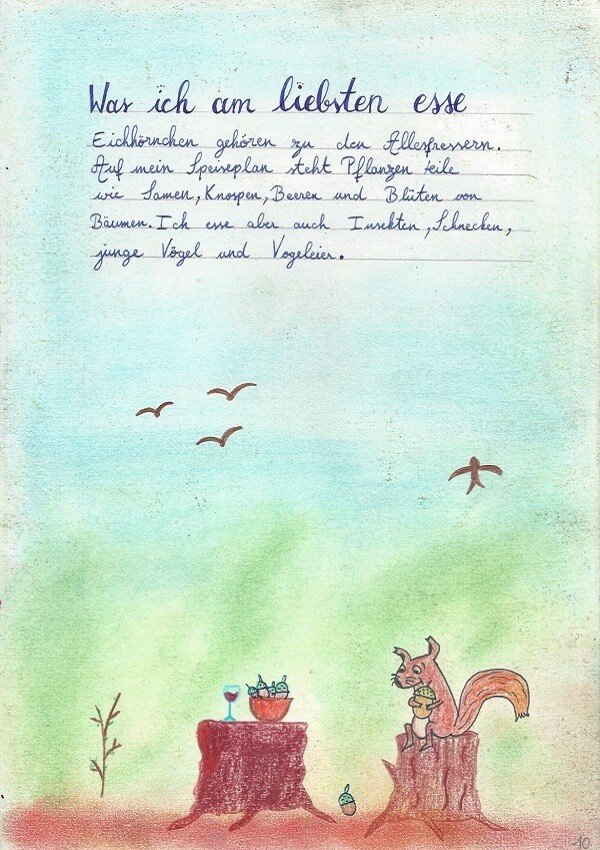 Was ich am liebsten esse
Eichhörnchen gehören zu den Allesfressern.
Auf mein Speiseplan steht Pflanzen teile
wie Samen, Knospen, Beeren und Blüten von
Bäumen. Ich esse aber auch Insekten, Schnecken,
junge Vögel und Vogeleier.
10